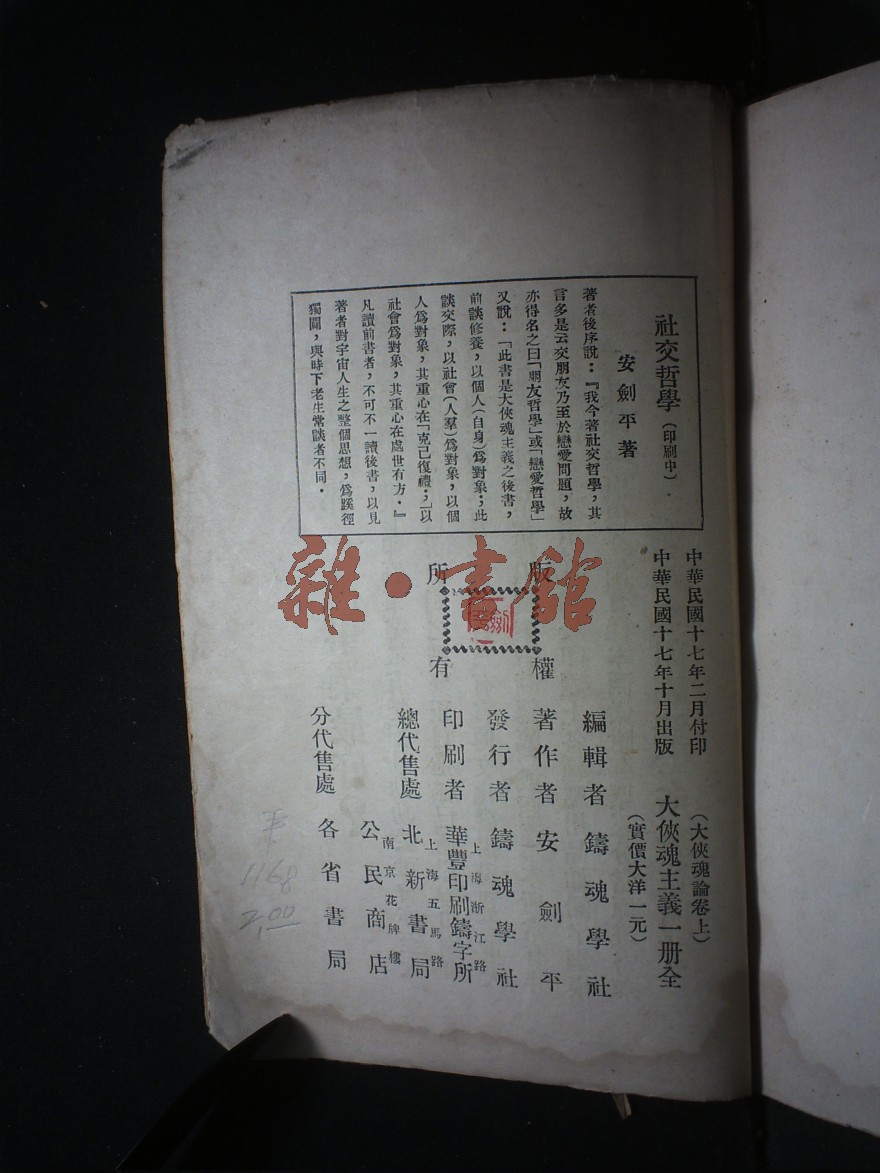 社交哲學(印刷中)
安劍平著
著者後序說：『我今著社交哲學，其
言多是云交朋友乃至於戀愛問題，故
亦得名之曰「朋友哲學」或「戀愛哲學」
又說：「此書是大俠魂主義之後書，
前談修養，以個人(自身)爲對象；此
談交際，以社會(人羣)爲對象，以個
人爲對象，其重心在「克己復禮；」以
社會爲對象，其重心在處世有方．』
凡讀前書者，不可不一讀後書，以見
著者對宇宙人生之整個思想，爲蹊徑
獨闢，與時下老生常談者不同．
中華民國十七年二月付印
中華民國十七年十月出版
(大俠魂論卷上)
大俠魂主義一册全
(實價大洋一元)
版權
所有
編輯者 鑄魂學社
著作者 安劍平
發行者 鑄魂學社
印刷者 上海浙江路 華豐印刷鑄字所
總代售處 上海五馬路 北新書局
南京花牌樓 公民商店
分代售處 各省書局
雜·書館
1168
2.00